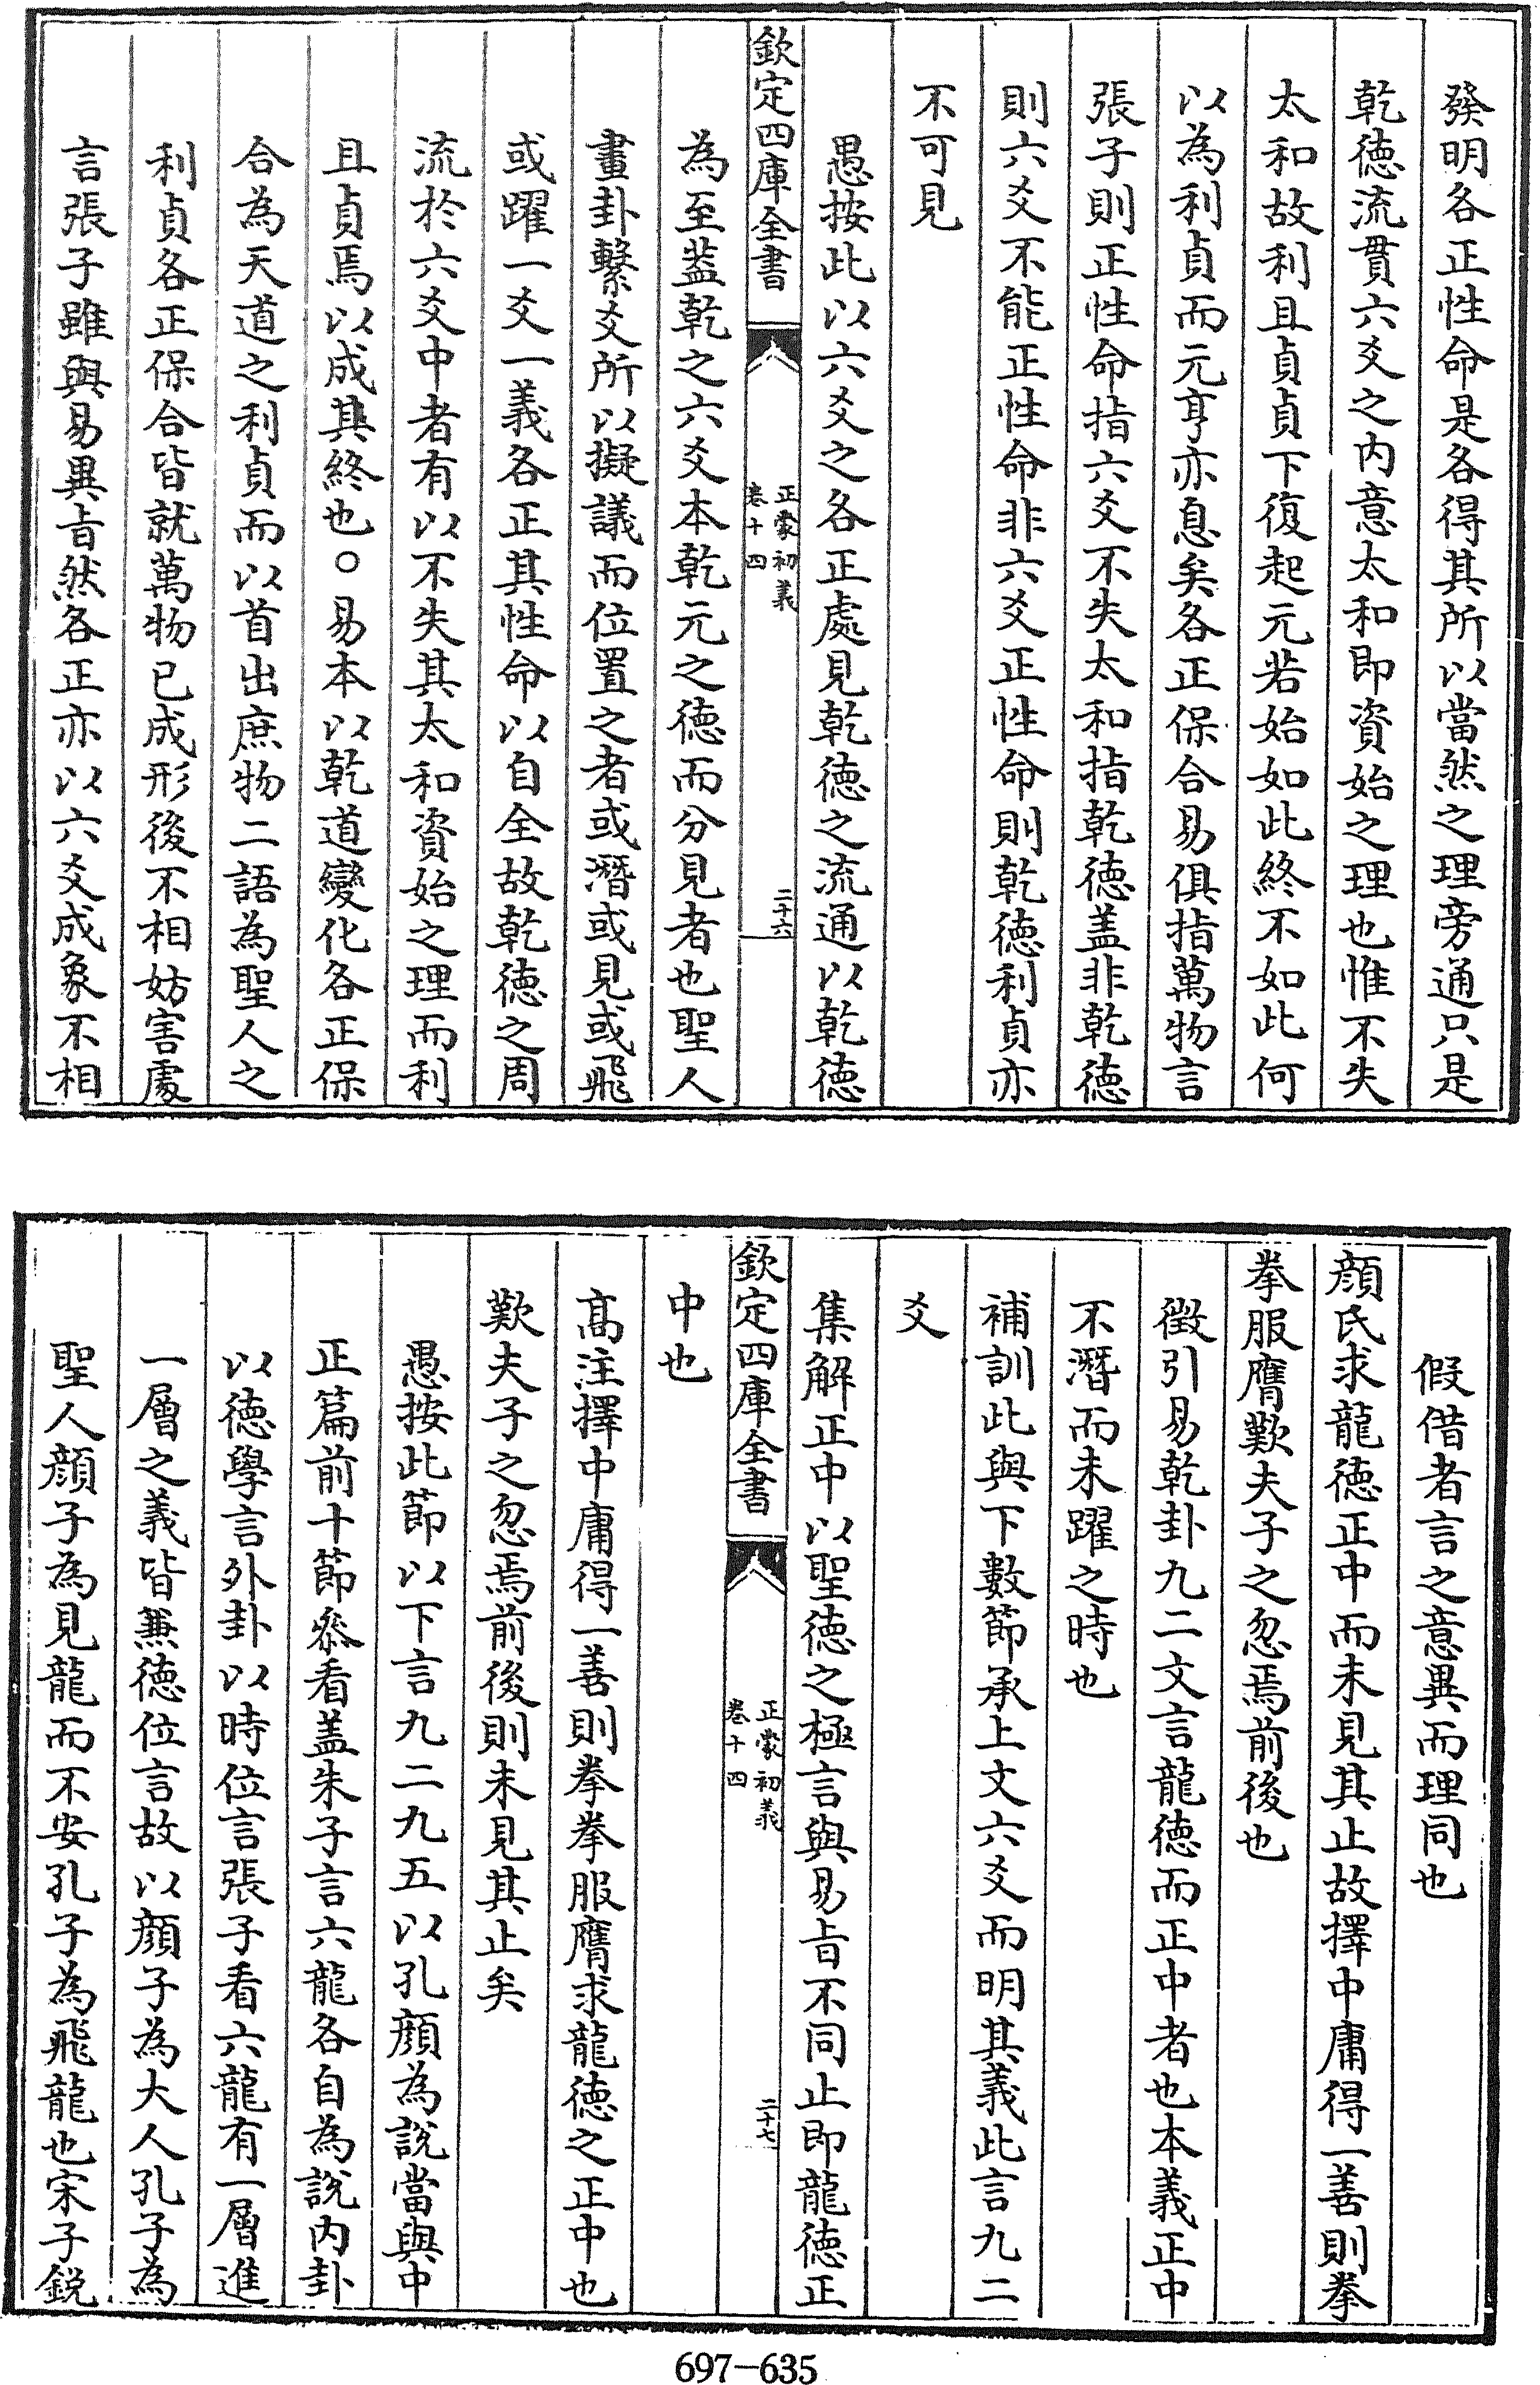 發明各正性命是各得其所以當然之理旁通只是
乾徳流貫六爻之内意太和即資始之理也惟不失
太和故利且貞貞下復起元若始如此終不如此何
以為利貞而元亨亦息矣各正保合易俱指萬物言
張子則正性命指六爻不失太和指乾徳盖非乾徳
則六爻不能正性命非六爻正性命則乾徳利貞亦
不可見
愚按此以六爻之各正處見乾徳之流通以乾徳
欽定四庫全書
正蒙初義
卷十四
二十六
為至葢乾之六爻本乾元之徳而分見者也聖人
畫卦繫爻所以擬議而位置之者或潛或見或飛
或躍一爻一義各正其性命以自全故乾徳之周
流於六爻中者有以不失其太和資始之理而利
且貞焉以成其終也○易本以乾道變化各正保
合為天道之利貞而以首出庶物二語為聖人之
利貞各正保合皆就萬物已成形後不相妨害處
言張子雖與易異㫖然各正亦以六爻成象不相
假借者言之意異而理同也
顔氏求龍徳正中而未見其止故擇中庸得一善則拳
拳服膺歎夫子之忽焉前後也
徴引易乾卦九二文言龍徳而正中者也本義正中
不潛而未躍之時也
補訓此與下數節承上文六爻而明其義此言九二
爻
集解正中以聖徳之極言與易㫖不同止即龍徳正
欽定四庫全書
正蒙初義
卷十四
二十七
中也
髙注擇中庸得一善則拳拳服膺求龍徳之正中也
歎夫子之忽焉前後則未見其止矣
愚按此節以下言九二九五以孔顔為説當與中
正篇前十節叅看盖朱子言六龍各自為説内卦
以徳學言外卦以時位言張子看六龍有一層進
一層之義皆兼徳位言故以顔子為大人孔子為
聖人顔子為見龍而不安孔子為飛龍也宋子鋭
697-635